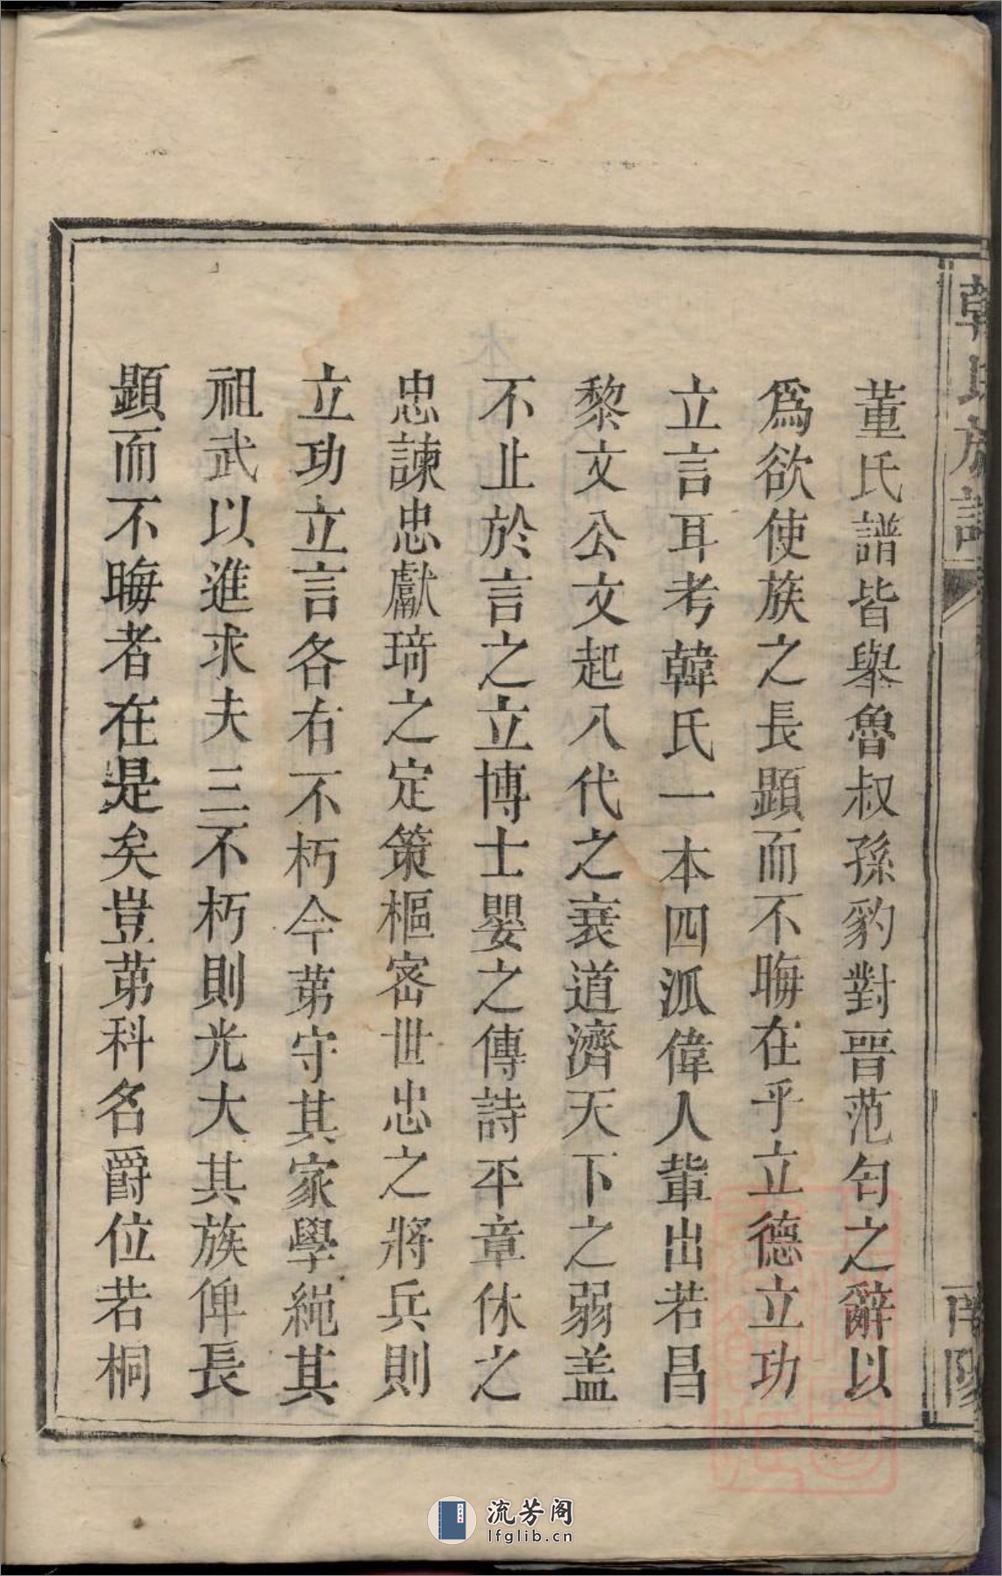 韓氏族譜
南陽
董氏譜皆舉魯叔孫豹對晉范匄之辭以
爲欲使族之長顕而不晦在乎立德立功
立言耳考韓氏一本四派偉人輩出若昌
黎文公文起八代之衰道濟天下之弱盖
不止於言之立博士嬰之傳詩平章休之
忠諫忠獻琦之定策樞密世忠之將兵則
立功立言各有不朽今苐守其家學繩其
祖武以進求夫三不朽則光大其族俾長
顕而不晦者在是矣豈苐科名爵位若桐
流芳阁
lfglib.cn